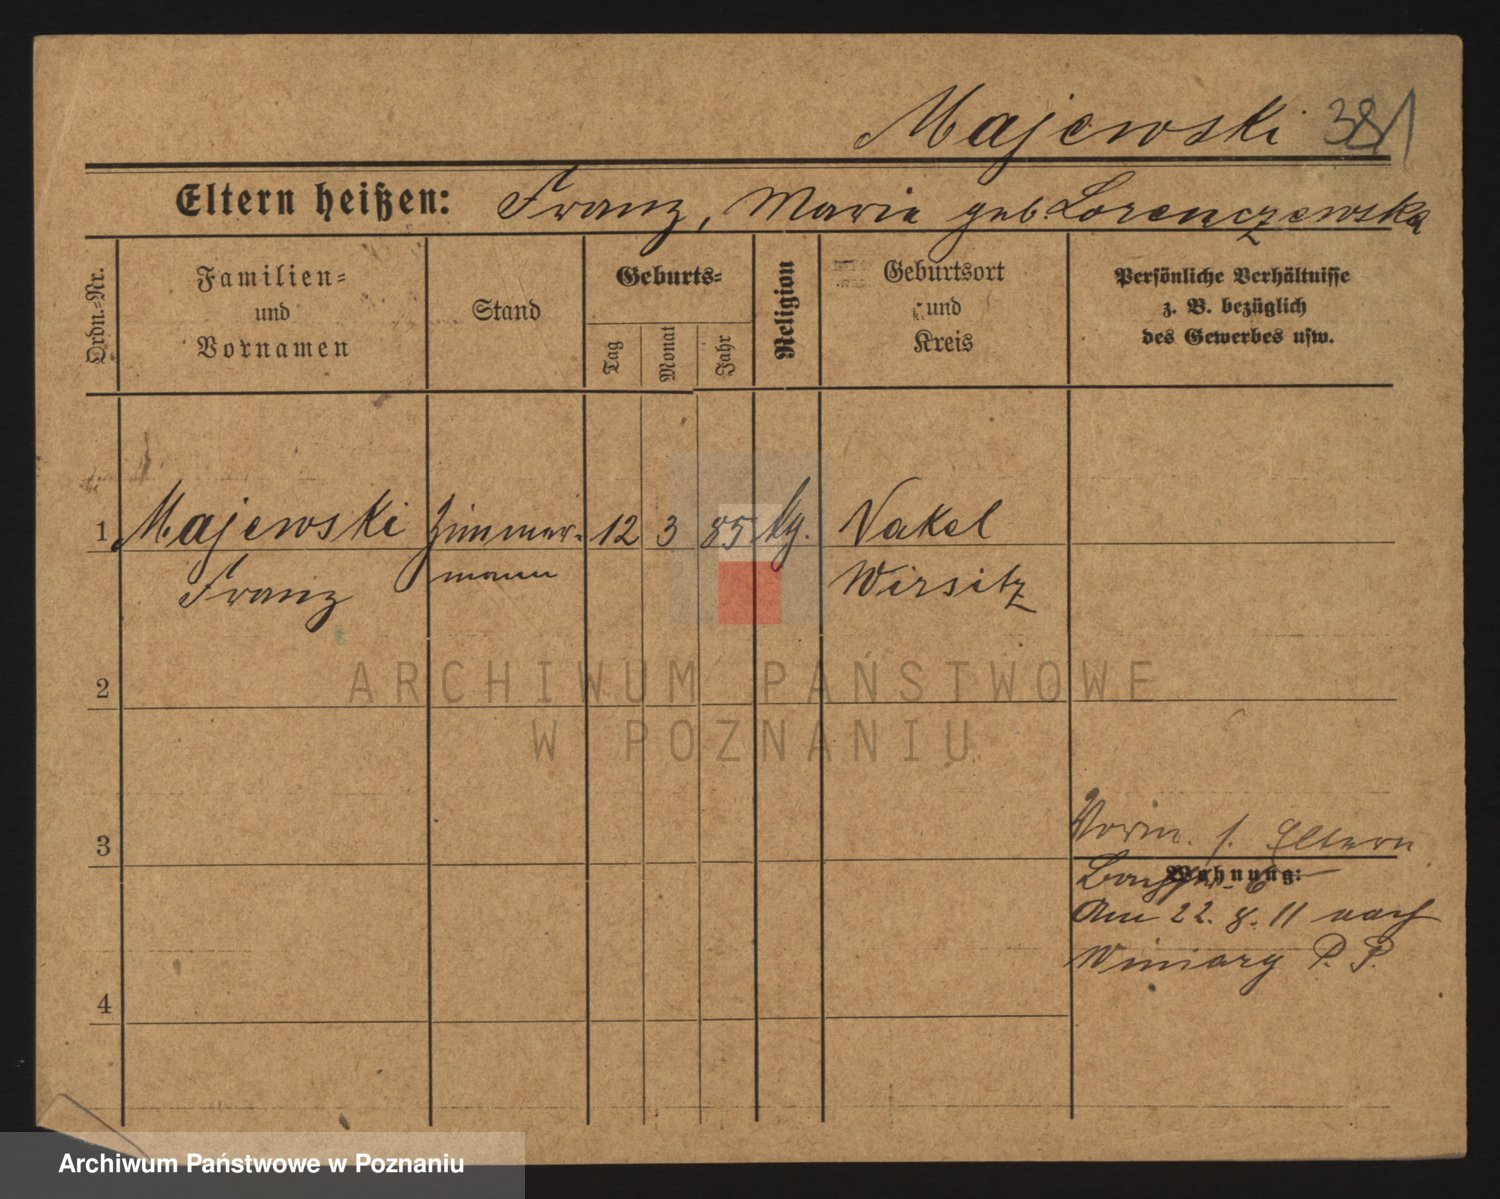 Majewski 381
Eltern heißen: Franz, Maria geb. Lorenczewska
Ordn.-Nr.
Familien-
und
Vornamen
Stand
Geburts-
Tag
Monat
Jahr
Religion
Geburtsort
und
Kreis
Persönliche Verhältnisse
z. B. bezüglich
des Gewerbes usw.
1 Majewski Zimmer- 12 3 85 Nakel
Franz mann Wirsitz
2
ARCHIWUM PAŃSTWOWE
W POZNANIU
3
s. Eltern
Wohnung:
Am 22. 8. 11 nach
Winiary P. P.
4
Archiwum Państwowe w Poznaniu